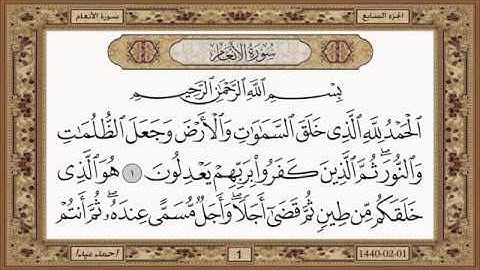 سورة الأنعام
الجزء السابع
سُورَةُ الأَنْعَامِ
بِسْمِ اللَّهِ الرَّحْمَٰنِ الرَّحِيمِ
الْحَمْدُ لِلَّهِ الَّذِي خَلَقَ السَّمَٰوَٰتِ وَالْأَرْضَ وَجَعَلَ الظُّلُمَٰتِ
وَالنُّورَ ۖ ثُمَّ الَّذِينَ كَفَرُوا بِرَبِّهِمْ يَعْدِلُونَ ١ هُوَ الَّذِي
خَلَقَكُم مِّن طِينٍ ثُمَّ قَضَىٰ أَجَلًا ۖ وَأَجَلٌ مُّسَمًّى عِندَهُ ۖ ثُمَّ أَنتُمْ
احمد عيد
1
1440-02-01